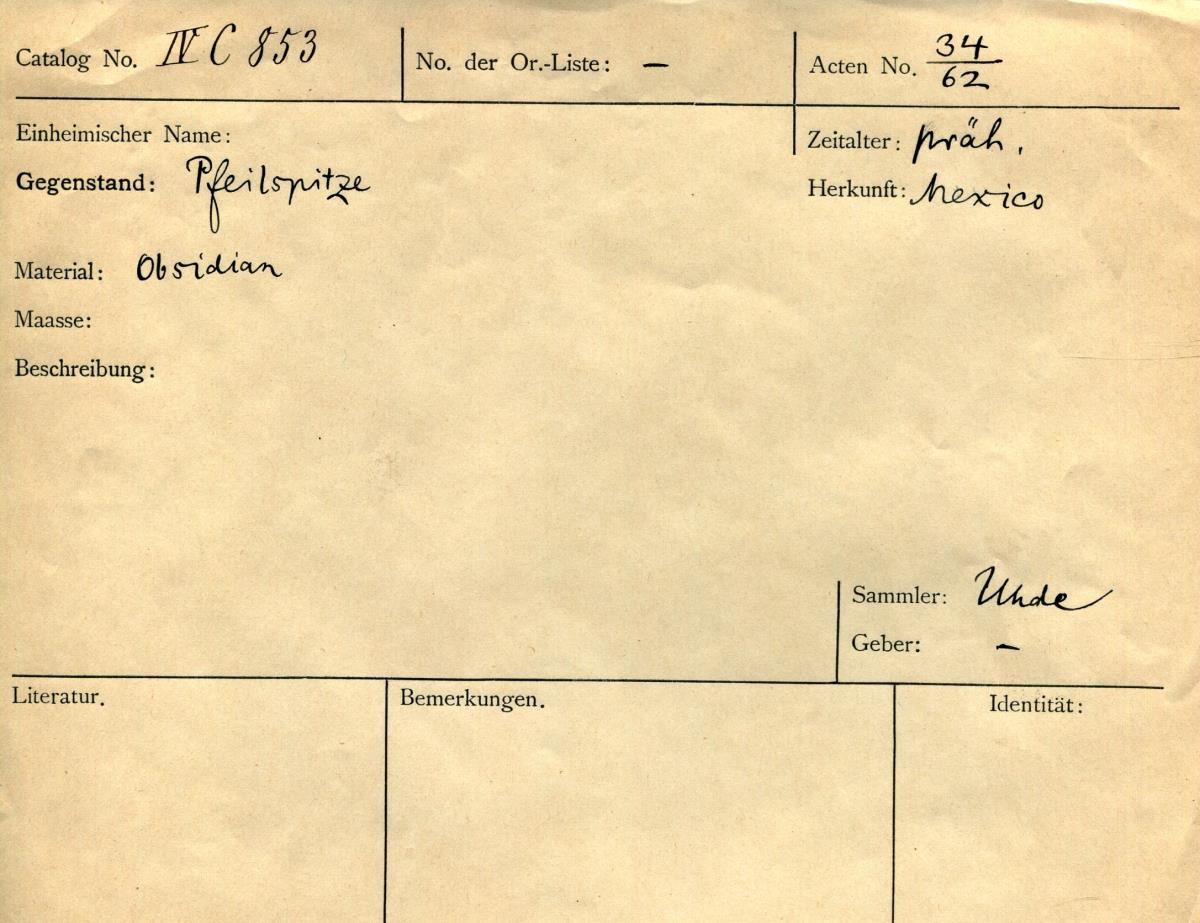 Catalog No. IV C 853
No. der Or.-Liste: –
Acten No. 34/62
Einheimischer Name:
Zeitalter: präh.
Gegenstand: Pfeilspitze
Herkunft: Mexico
Material: Obsidian
Maasse:
Beschreibung:
Sammler: Uhde
Geber: –
Literatur.
Bemerkungen.
Identität: